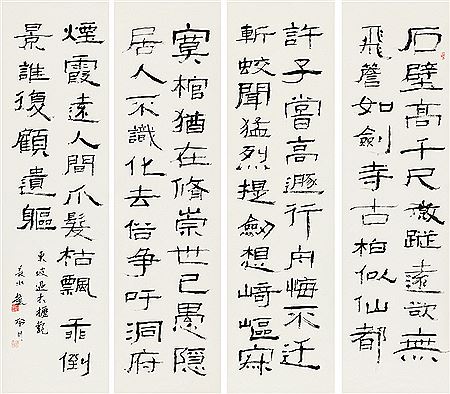 石壁高千尺微蹤遠欲無
飛簷如劍寺古柏似仙都
許子嘗高遯行舟悔不迂
斬蛟聞猛烈提劍想崎嶇寂
寞棺猶在脩崇世已愚隱
居人不識化去俗爭吁洞府
煙霞遠人間爪髮枯飄乘倒
景誰復顧遺軀
東坡過木櫪觀
長水